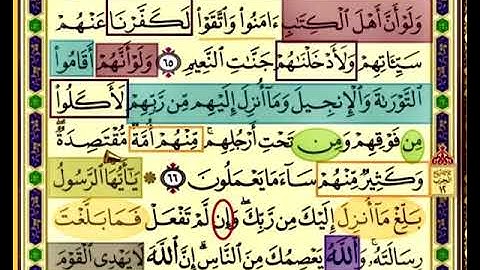 وَلَوْ أَنَّ أَهْلَ ٱلْكِتَٰبِ ءَامَنُوا۟ وَٱتَّقَوْا۟ لَكَفَّرْنَا عَنْهُمْ
سَيِّـَٔاتِهِمْ وَلَأَدْخَلْنَٰهُمْ جَنَّٰتِ ٱلنَّعِيمِ ٦٥ وَلَوْ أَنَّهُمْ أَقَامُوا۟
ٱلتَّوْرَىٰةَ وَٱلْإِنجِيلَ وَمَآ أُنزِلَ إِلَيْهِم مِّن رَّبِّهِمْ لَأَكَلُوا۟
مِن فَوْقِهِمْ وَمِن تَحْتِ أَرْجُلِهِم ۚ مِّنْهُمْ أُمَّةٌ مُّقْتَصِدَةٌ ۖ
وَكَثِيرٌ مِّنْهُمْ سَآءَ مَا يَعْمَلُونَ ٦٦ ۞ يَٰٓأَيُّهَا ٱلرَّسُولُ
بَلِّغْ مَآ أُنزِلَ إِلَيْكَ مِن رَّبِّكَ ۖ وَإِن لَّمْ تَفْعَلْ فَمَا بَلَّغْتَ
رِسَالَتَهُۥ ۚ وَٱللَّهُ يَعْصِمُكَ مِنَ ٱلنَّاسِ ۗ إِنَّ ٱللَّهَ لَا يَهْدِى ٱلْقَوْمَ